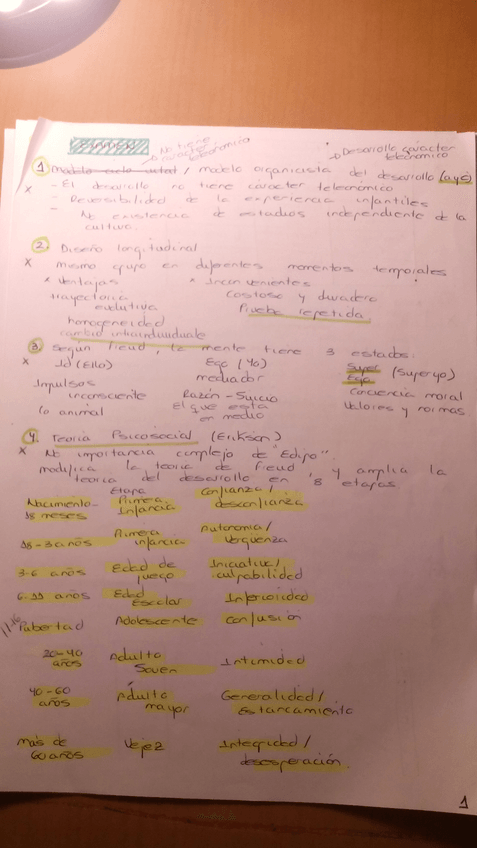 EXAMEN
No tiene
caracter
teleonomico
Desarrollo caracter
teleonomico
1 modelo ciclo vital / modelo organicista del desarrollo (a y c)
x - El desarrollo no tiene caracter teleonómico
- Reversibilidad de la experiencia infantiles
- No existencia de estadios independiente de la
cultura.
2. Diseño longitudinal
x mismo grupo en diferentes momentos temporales
* Ventajas * Inconvenientes
trayectoria costoso y duradero
evolutiva Prueba repetida
homogeneidad
cambio intraindividuale
3. Según Freud, la mente tiene 3 estados:
x Id (Ello) Ego (Yo) Super (Superyo)
Ego
Impulsos mediador Conciencia moral
inconsciente Razón - Juicio Valores y normas
lo animal El que está
en medio
4. Teoría Psicosocial (Erikson)
x No importancia complejo de "Edipo".
modifica la teoria de Freud y amplia la
teoria del desarrollo en "8 etapas
Etapa Confianza/
Nacimiento- Primera desconfianza
18 meses Infancia
18-3 años Primera Autonomia/
infancia Verguenza
3-6 años Edad de Iniciativa/
juego culpabilidad
6-11 años Edad Inferioridad
Escolar
11-16 Pubertad Adolescente confusión
20-40 Adulto Intimidad
años Joven
40-60 Adulto Generalidad/
años mayor Estancamiento
más de Vejez Integridad/
60 años desesperación.
1